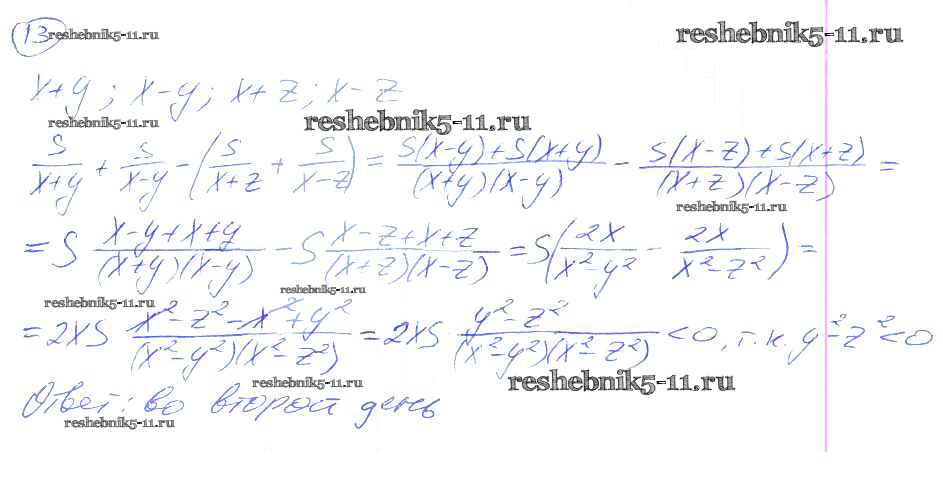 13 reshebnik5-11.ru reshebnik5-11.ru
x+y; x-y; x+z; x-z
reshebnik5-11.ru reshebnik5-11.ru
S/(x+y) + S/(x-y) - (S/(x+z) + S/(x-z)) = (S(x-y)+S(x+y))/((x+y)(x-y)) - (S(x-z)+S(x+z))/((x+z)(x-z)) =
reshebnik5-11.ru
= S (x-y+x+y)/((x+y)(x-y)) - S (x-z+x+z)/((x+z)(x-z)) = S(2x/(x²-y²) - 2x/(x²-z²)) =
reshebnik5-11.ru reshebnik5-11.ru
= 2xS (x²-z²-x²+y²)/((x²-y²)(x²-z²)) = 2xS (y²-z²)/((x²-y²)(x²-z²)) < 0, т.к. y²-z² < 0
reshebnik5-11.ru reshebnik5-11.ru
Ответ: во второй день
reshebnik5-11.ru